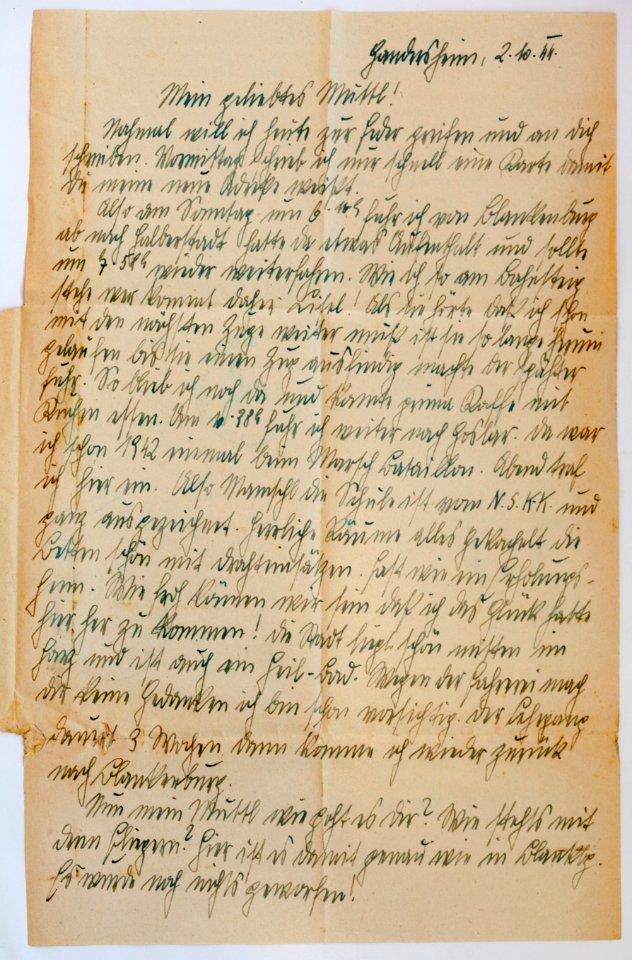 Gandersheim, 2.10.44.
Mein geliebtes Muttl!
Nochmal will ich heute zur Feder greifen und an dich
schreiben. Vormittag schrieb ich nur schnell eine Karte damit
Du meine neue Adresse weißt.
Also am Sonntag um 6 fuhr ich von Blankenburg
ab nach Halberstadt hatte da etwas Aufenthalt und sollte
um 7 wieder weiterfahren. Wie ich so am Bahnsteig
stehe wer kommt daher Lisel! Als die hörte daß ich schon
mit den nächsten Zuge weiter muß ist sie so lange herum
gelaufen bis sie einen Zug ausfindig machte der später
fuhr. So blieb ich noch da und konnte prima Kaffe mit
Kuchen essen. Um fuhr ich weiter nach Goslar. da war
ich schon 1942 einmal beim Marsch Bataillon. Abend traf
ich hier ein. Also die Schule ist vom N.S.K.K. und
ganz ausgezeichnet. Herrliche Räume alles gekachelt die
Betten schön mit Drahteinsätzen. Fast wie ein Erholungs-
heim. Wie froh können wir sein daß ich das Glück hatte
hier her zu kommen! die Stadt liegt schön mitten im
Harz und ist auch ein Heil-Bad. Wegen der Fahrerei mach
dir keine Gedanken ich bin schon vorsichtig. Der Lehrgang
dauert 3 Wochen dann komme ich wieder zurück
nach Blankenburg.
Nun mein Muttl wie geht es dir? Wie stehts mit
denn Fliegern? Hier ist es damit genau wie in Blankbg.
Es wurde noch nichts geworfen!